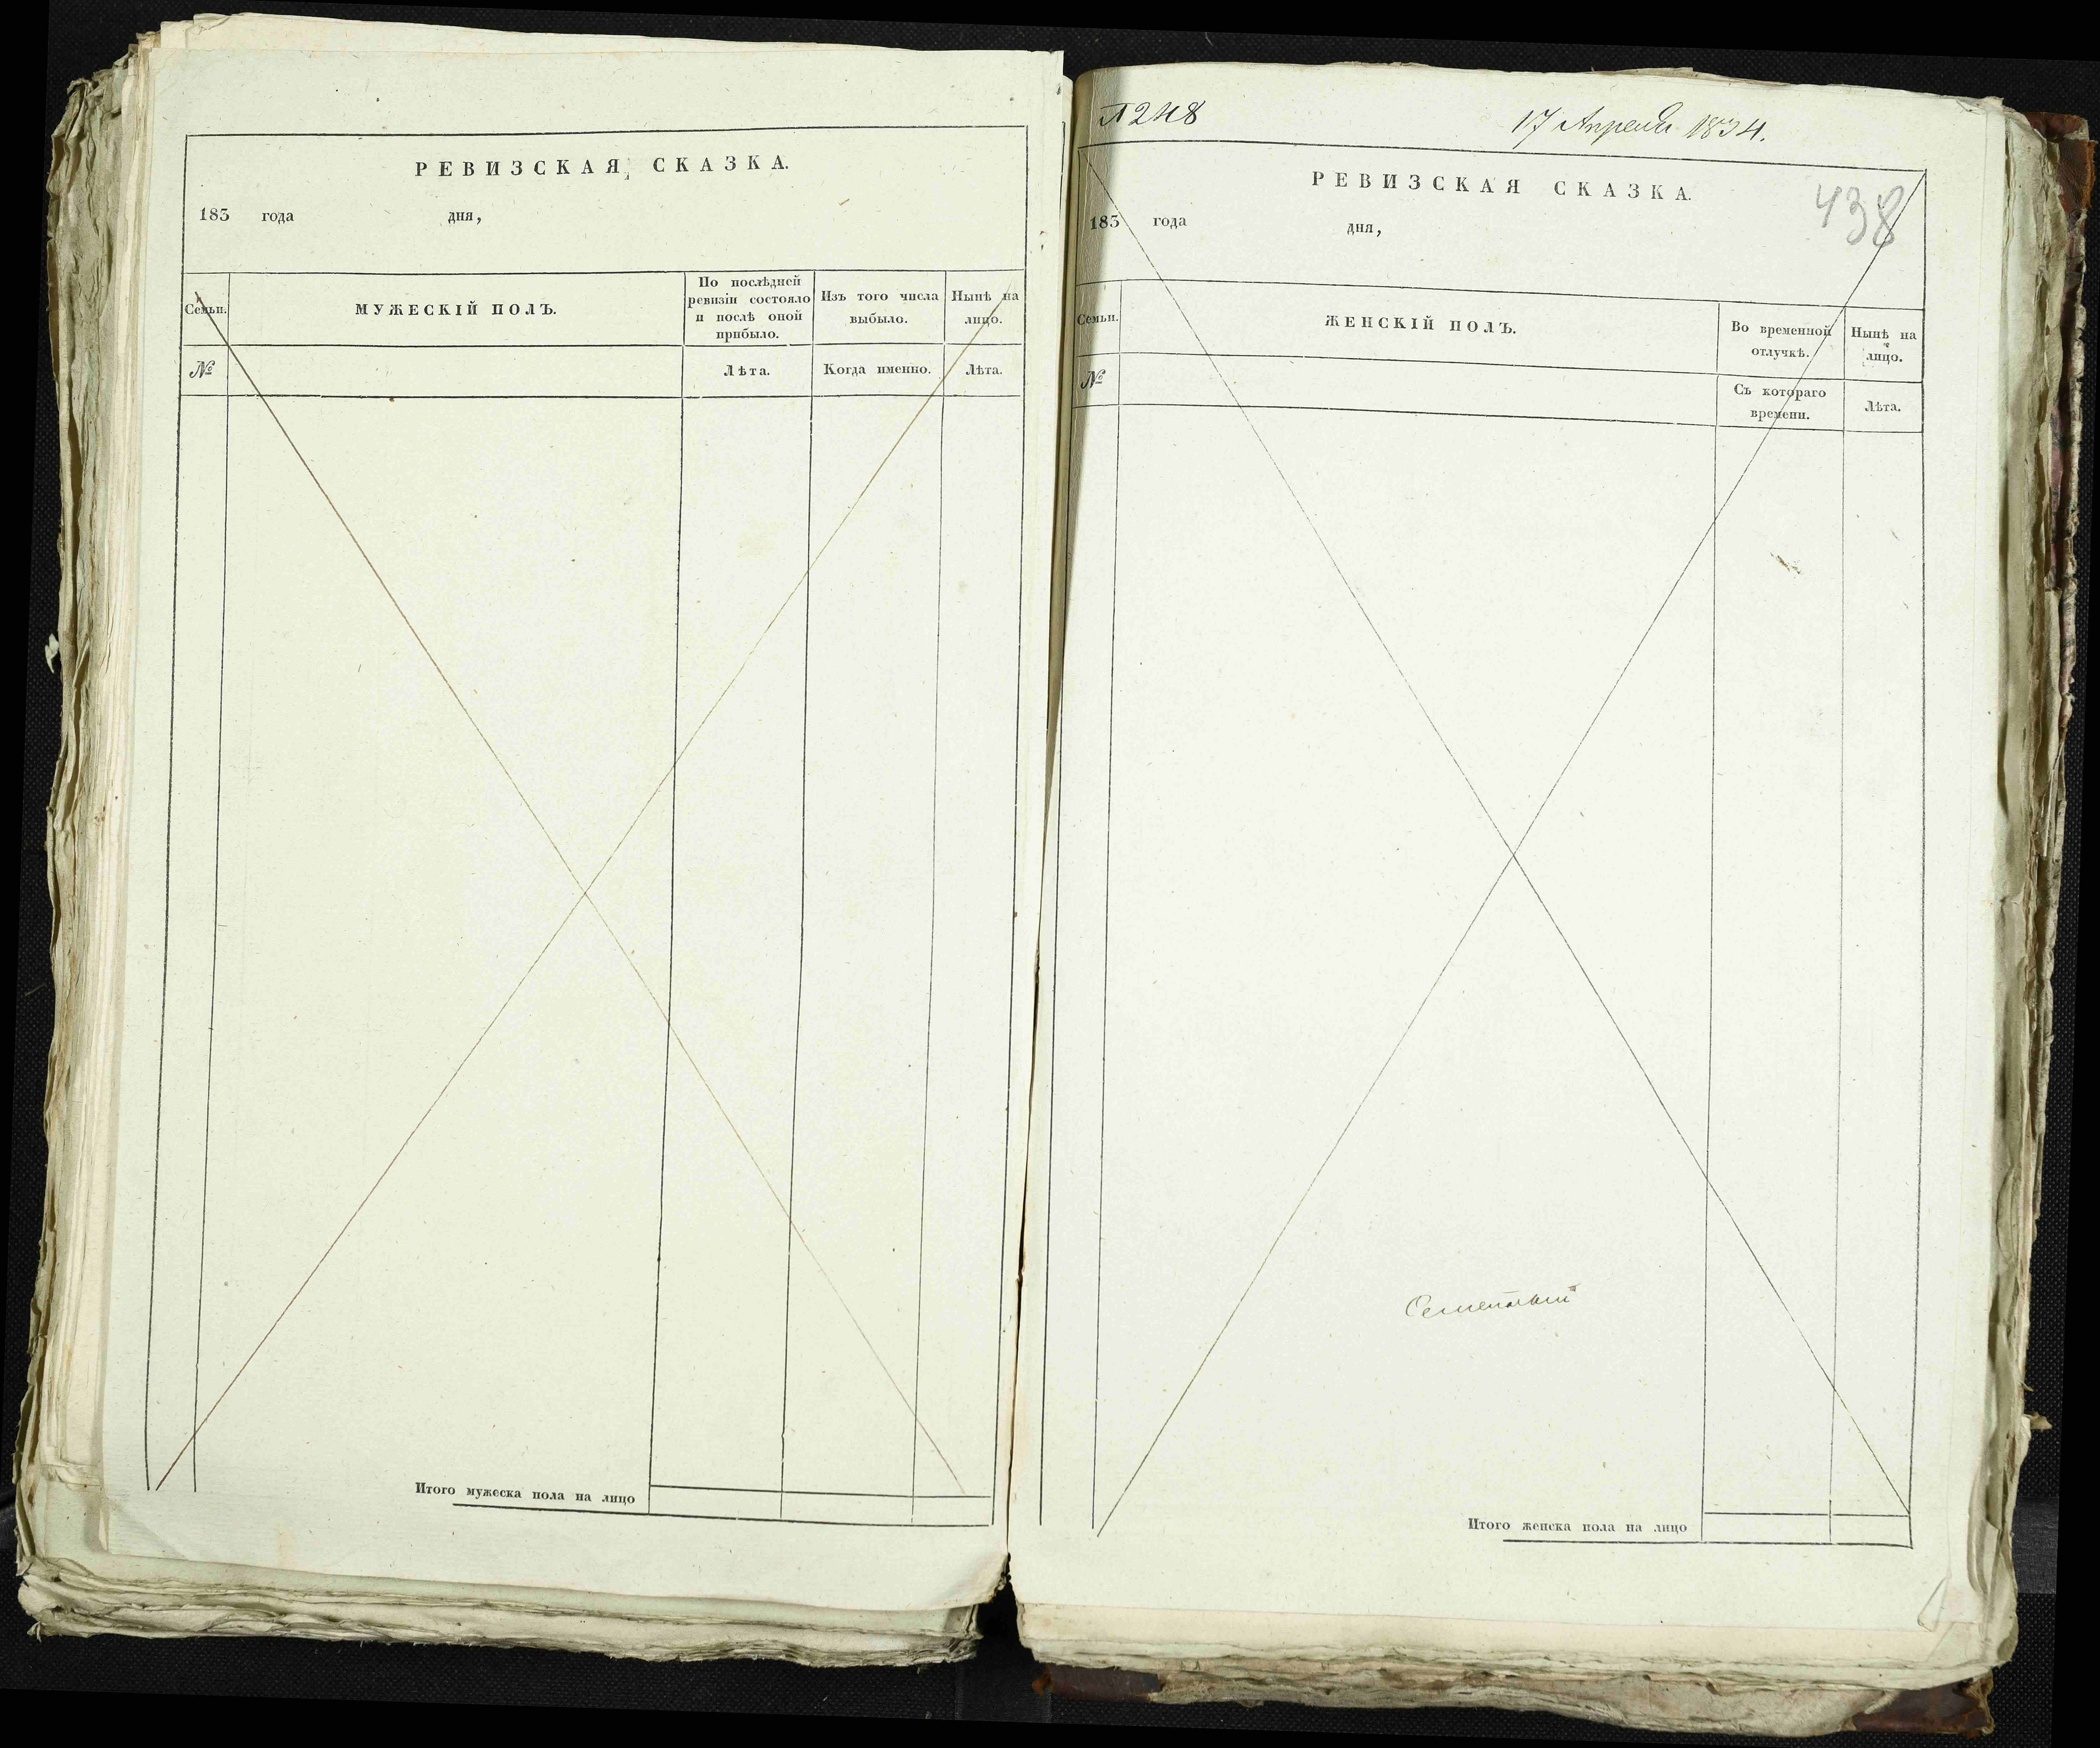 РЕВИЗСКАЯ СКАЗКА.
183 года дня,
Семьи.
МУЖЕСКІЙ ПОЛЪ.
По послѣдней
ревизіи состояло
и послѣ оной
прибыло.
Изъ того числа
выбыло.
Нынѣ на
лицо.
№
Лѣта.
Когда именно.
Лѣта.
Итого мужеска пола на лицо
17 Апреля 1834.
РЕВИЗСКАЯ СКАЗКА.
438
183 года дня,
Семьи.
ЖЕНСКІЙ ПОЛЪ.
Во временной
отлучкѣ.
Нынѣ на
лицо.
№
Съ котораго
времени.
Лѣта.
Итого женска пола на лицо